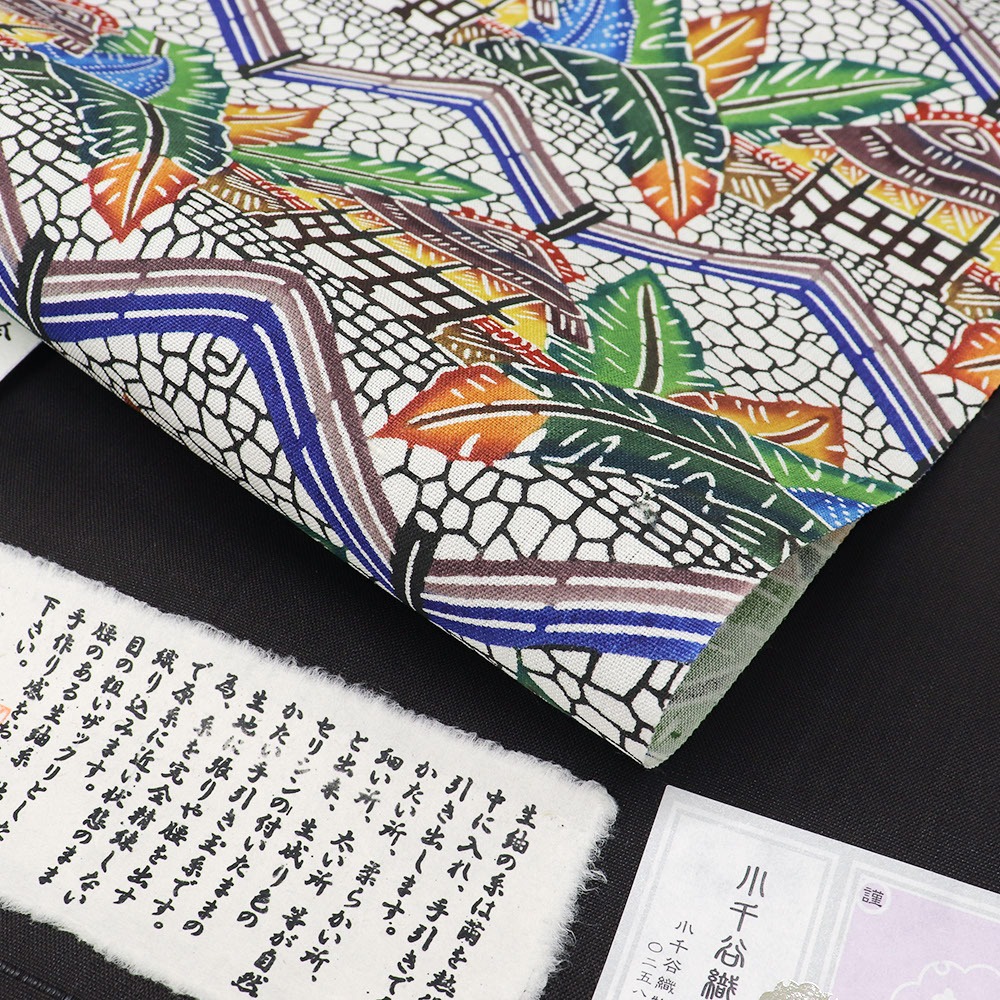 生紬の糸は繭を熱
中に入れ、手引きで
引き出します。
かたい所、柔らかい所、
細い所、太い所 等が自然
と出来、生成り色の
セリシンの付いたままの
かたい手引き玉糸です。
生地に張りや腰を出す
為、糸を完全精練しない
で原糸に近い状態のまま
織り込みます。
目の粗いザックリとした
腰のある生紬
手作り感を
下さい。
小千谷織
小千谷織
〇二五八
謹